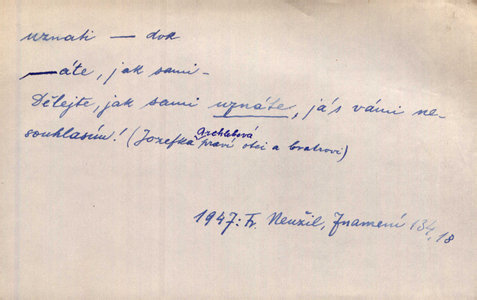 uznati — dok
—áte, jak sami -
Dělejte, jak sami uznáte, já s vámi ne-
souhlasím! (Jozefka Grehlebová praví otci a bratrovi)
1947: Fr. Neužil, Znamení 134, 18